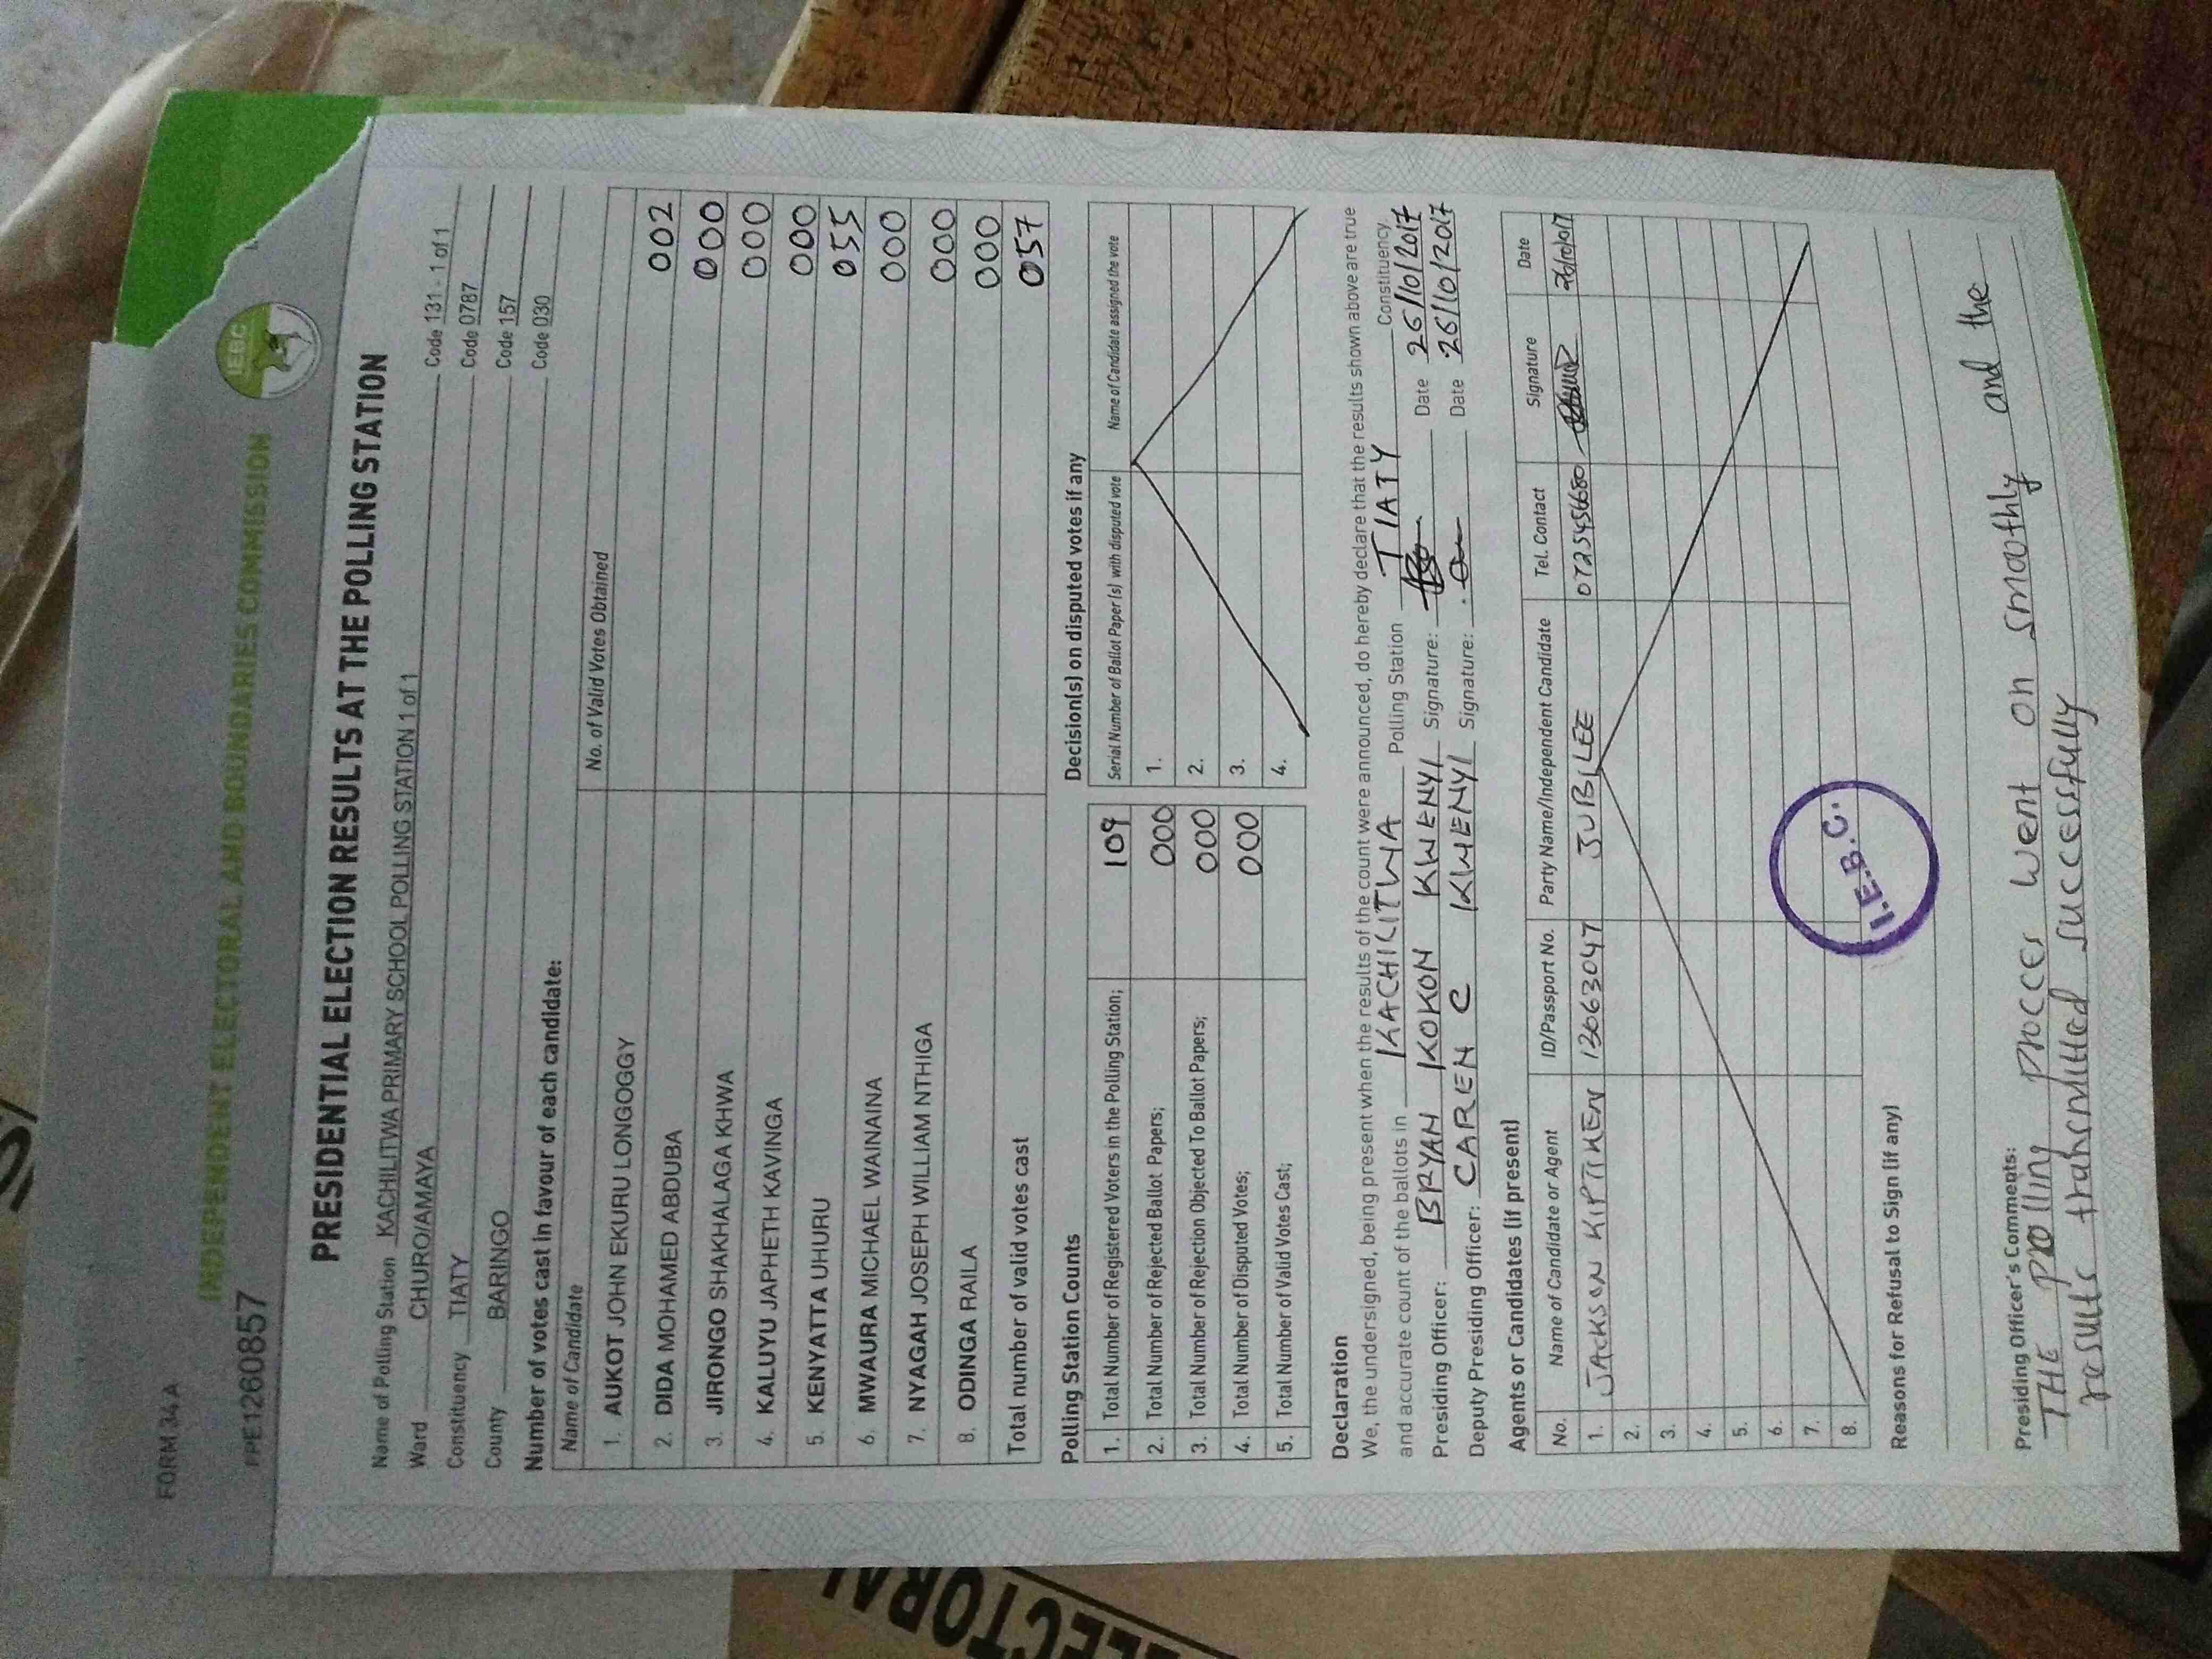 FORM 34A
INDEPENDENT ELECTORAL AND BOUNDARIES COMMISSION
IEBC
PRE1260857
PRESIDENTIAL ELECTION RESULTS AT THE POLLING STATION
Name of Polling Station KACHILITWA PRIMARY SCHOOL POLLING STATION 1 of 1 Code 131 - 1 of 1
Ward CHURO/AMAYA Code 0787
Constituency TIATY Code 157
County BARINGO Code 030
Number of votes cast in favour of each candidate:
Name of Candidate No. of Valid Votes Obtained
1. AUKOT JOHN EKURU LONGOGGY 002
2. DIDA MOHAMED ABDUBA 000
3. JIRONGO SHAKHALAGA KHWA 000
4. KALUYU JAPHETH KAVINGA 000
5. KENYATTA UHURU 055
6. MWAURA MICHAEL WAINAINA 000
7. NYAGAH JOSEPH WILLIAM NTHIGA 000
8. ODINGA RAILA 000
Total number of valid votes cast 057
Polling Station Counts Decision(s) on disputed votes if any
Serial Number of Ballot Paper (s) with disputed vote Name of Candidate assigned the vote
1. Total Number of Registered Voters in the Polling Station; 109 1.
2. Total Number of Rejected Ballot Papers; 000 2.
3. Total Number of Rejection Objected To Ballot Papers; 000 3.
4. Total Number of Disputed Votes; 000 4.
5. Total Number of Valid Votes Cast;
Declaration
We, the undersigned, being present when the results of the count were announced, do hereby declare that the results shown above are true
and accurate count of the ballots in KACHILITWA Polling Station TIATY Constituency
Presiding Officer: BRYAN KOKON KWENYI Signature: Date 26/10/2017
Deputy Presiding Officer: CAREN C KWENYI Signature: Date 26/10/2017
Agents or Candidates (if present)
No. Name of Candidate or Agent ID/Passport No. Party Name/Independent Candidate Tel. Contact Signature Date
1. JACKSON KIPTIKEN 13663047 JUBILEE 0725456680
2.
3.
4.
5.
6.
7.
8.
I.E.B.C.
Reasons for Refusal to Sign (if any)
Presiding Officer's Comments:
THE polling procces went on smoothly and the
results transmitted successfully